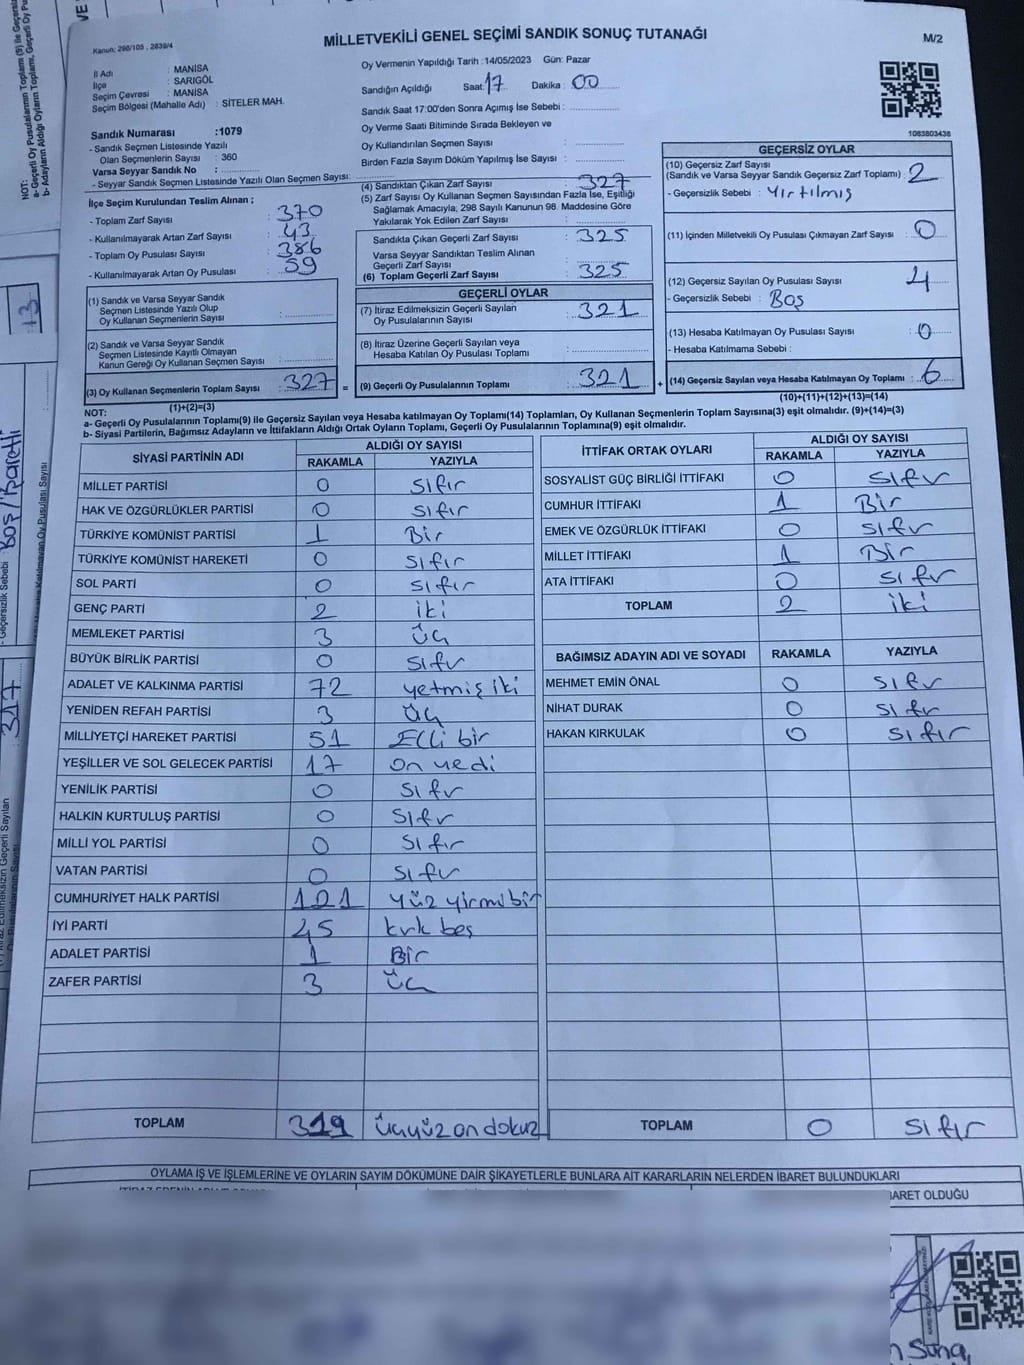 MİLLETVEKİLİ GENEL SEÇİMİ SANDIK SONUÇ TUTANAĞI
M/2
Kanun: 298/105 , 2839/4
İl Adı : MANİSA
İlçe : SARIGÖL
Seçim Çevresi : MANİSA
Seçim Bölgesi (Mahalle Adı) : SİTELER MAH.
Sandık Numarası :1079
- Sandık Seçmen Listesinde Yazılı
Olan Seçmenlerin Sayısı : 360
Varsa Seyyar Sandık No :
- Seyyar Sandık Seçmen Listesinde Yazılı Olan Seçmen Sayısı:
Oy Vermenin Yapıldığı Tarih :14/05/2023 Gün: Pazar
Sandığın Açıldığı Saat: 17 Dakika : 00
Sandık Saat 17:00'den Sonra Açımış İse Sebebi :
Oy Verme Saati Bitiminde Sırada Bekleyen ve
Oy Kullandırılan Seçmen Sayısı :
Birden Fazla Sayım Döküm Yapılmış İse Sayısı :
1083803438
İlçe Seçim Kurulundan Teslim Alınan ;
- Toplam Zarf Sayısı : 370
- Kullanılmayarak Artan Zarf Sayısı : 43
- Toplam Oy Pusulası Sayısı : 386
- Kullanılmayarak Artan Oy Pusulası : 59
(1) Sandık ve Varsa Seyyar Sandık
Seçmen Listesinde Yazılı Olup
Oy Kullanan Seçmenlerin Sayısı :
(2) Sandık ve Varsa Seyyar Sandık
Seçmen Listesinde Kayıtlı Olmayan
Kanun Gereği Oy Kullanan Seçmen Sayısı :
(3) Oy Kullanan Seçmenlerin Toplam Sayısı : 327 =
(1)+(2)=(3)
(4) Sandıktan Çıkan Zarf Sayısı : 327
(5) Zarf Sayısı Oy Kullanan Seçmen Sayısından Fazla İse, Eşitliği
Sağlamak Amacıyla; 298 Sayılı Kanunun 98. Maddesine Göre
Yakılarak Yok Edilen Zarf Sayısı :
Sandıkta Çıkan Geçerli Zarf Sayısı : 325
Varsa Seyyar Sandıktan Teslim Alınan
Geçerli Zarf Sayısı :
(6) Toplam Geçerli Zarf Sayısı : 325
GEÇERLİ OYLAR
(7) İtiraz Edilmeksizin Geçerli Sayılan
Oy Pusulalarının Sayısı : 321
(8) İtiraz Üzerine Geçerli Sayılan veya
Hesaba Katılan Oy Pusulası Toplamı :
(9) Geçerli Oy Pusulalarının Toplamı : 321 +
GEÇERSİZ OYLAR
(10) Geçersiz Zarf Sayısı
(Sandık ve Varsa Seyyar Sandık Geçersiz Zarf Toplamı) : 2
- Geçersizlik Sebebi : Yırtılmış
(11) İçinden Milletvekili Oy Pusulası Çıkmayan Zarf Sayısı : 0
(12) Geçersiz Sayılan Oy Pusulası Sayısı : 4
- Geçersizlik Sebebi : Boş
(13) Hesaba Katılmayan Oy Pusulası Sayısı : 0
- Hesaba Katılmama Sebebi :
(14) Geçersiz Sayılan veya Hesaba Katılmayan Oy Toplamı : 6
(10)+(11)+(12)+(13)=(14)
NOT:
a- Geçerli Oy Pusulaları Toplamı(9) ile Geçersiz Sayılan veya Hesaba katılmayan Oy Toplamı(14) Toplamları, Oy Kullanan Seçmenlerin Toplam Sayısına(3) eşit olmalıdır. (9)+(14)=(3)
b- Siyasi Partilerin, Bağımsız Adayların ve İttifakların Aldığı Ortak Oyların Toplamı, Geçerli Oy Pusulalarının Toplamına(9) eşit olmalıdır.
SİYASİ PARTİNİN ADI ALDIĞI OY SAYISI
RAKAMLA YAZIYLA
MİLLET PARTİSİ 0 sıfır
HAK VE ÖZGÜRLÜKLER PARTİSİ 0 sıfır
TÜRKİYE KOMÜNİST PARTİSİ 1 Bir
TÜRKİYE KOMÜNİST HAREKETİ 0 sıfır
SOL PARTİ 0 sıfır
GENÇ PARTİ 2 iki
MEMLEKET PARTİSİ 3 üç
BÜYÜK BİRLİK PARTİSİ 0 sıfır
ADALET VE KALKINMA PARTİSİ 72 yetmiş iki
YENİDEN REFAH PARTİSİ 3 üç
MİLLİYETÇİ HAREKET PARTİSİ 51 Elli bir
YEŞİLLER VE SOL GELECEK PARTİSİ 17 on yedi
YENİLİK PARTİSİ 0 sıfır
HALKIN KURTULUŞ PARTİSİ 0 sıfır
MİLLİ YOL PARTİSİ 0 sıfır
VATAN PARTİSİ 0 sıfır
CUMHURİYET HALK PARTİSİ 121 yüz yirmi bir
İYİ PARTİ 45 kırk beş
ADALET PARTİSİ 1 Bir
ZAFER PARTİSİ 3 üç
TOPLAM 319 üçyüz on dokuz
İTTİFAK ORTAK OYLARI ALDIĞI OY SAYISI
RAKAMLA YAZIYLA
SOSYALİST GÜÇ BİRLİĞİ İTTİFAKI 0 sıfır
CUMHUR İTTİFAKI 1 Bir
EMEK VE ÖZGÜRLÜK İTTİFAKI 0 sıfır
MİLLET İTTİFAKI 1 Bir
ATA İTTİFAKI 0 sıfır
TOPLAM 2 iki
BAĞIMSIZ ADAYIN ADI VE SOYADI RAKAMLA YAZIYLA
MEHMET EMİN ÖNAL 0 sıfır
NİHAT DURAK 0 sıfır
HAKAN KIRKULAK 0 sıfır
TOPLAM 0 sıfır
OYLAMA İŞ VE İŞLEMLERİNE VE OYLARIN SAYIM DÖKÜMÜNE DAİR ŞİKAYETLERLE BUNLARA AİT KARARLARIN NELERDEN İBARET BULUNDUKLARI
BARET OLDUĞU